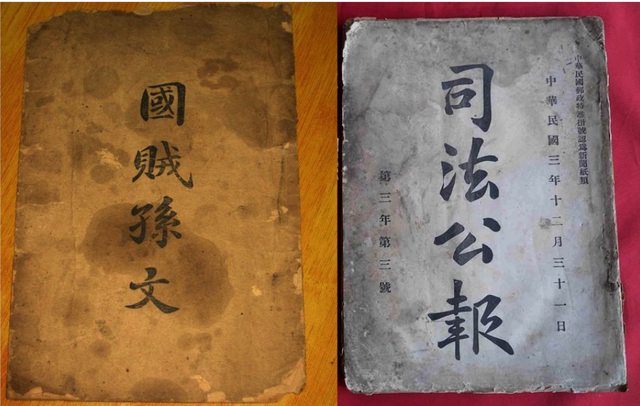 國賊孫文
中華民國郵政特准掛號認為新聞紙類
中華民國三年十二月三十一日
司法公報
第三年第三號